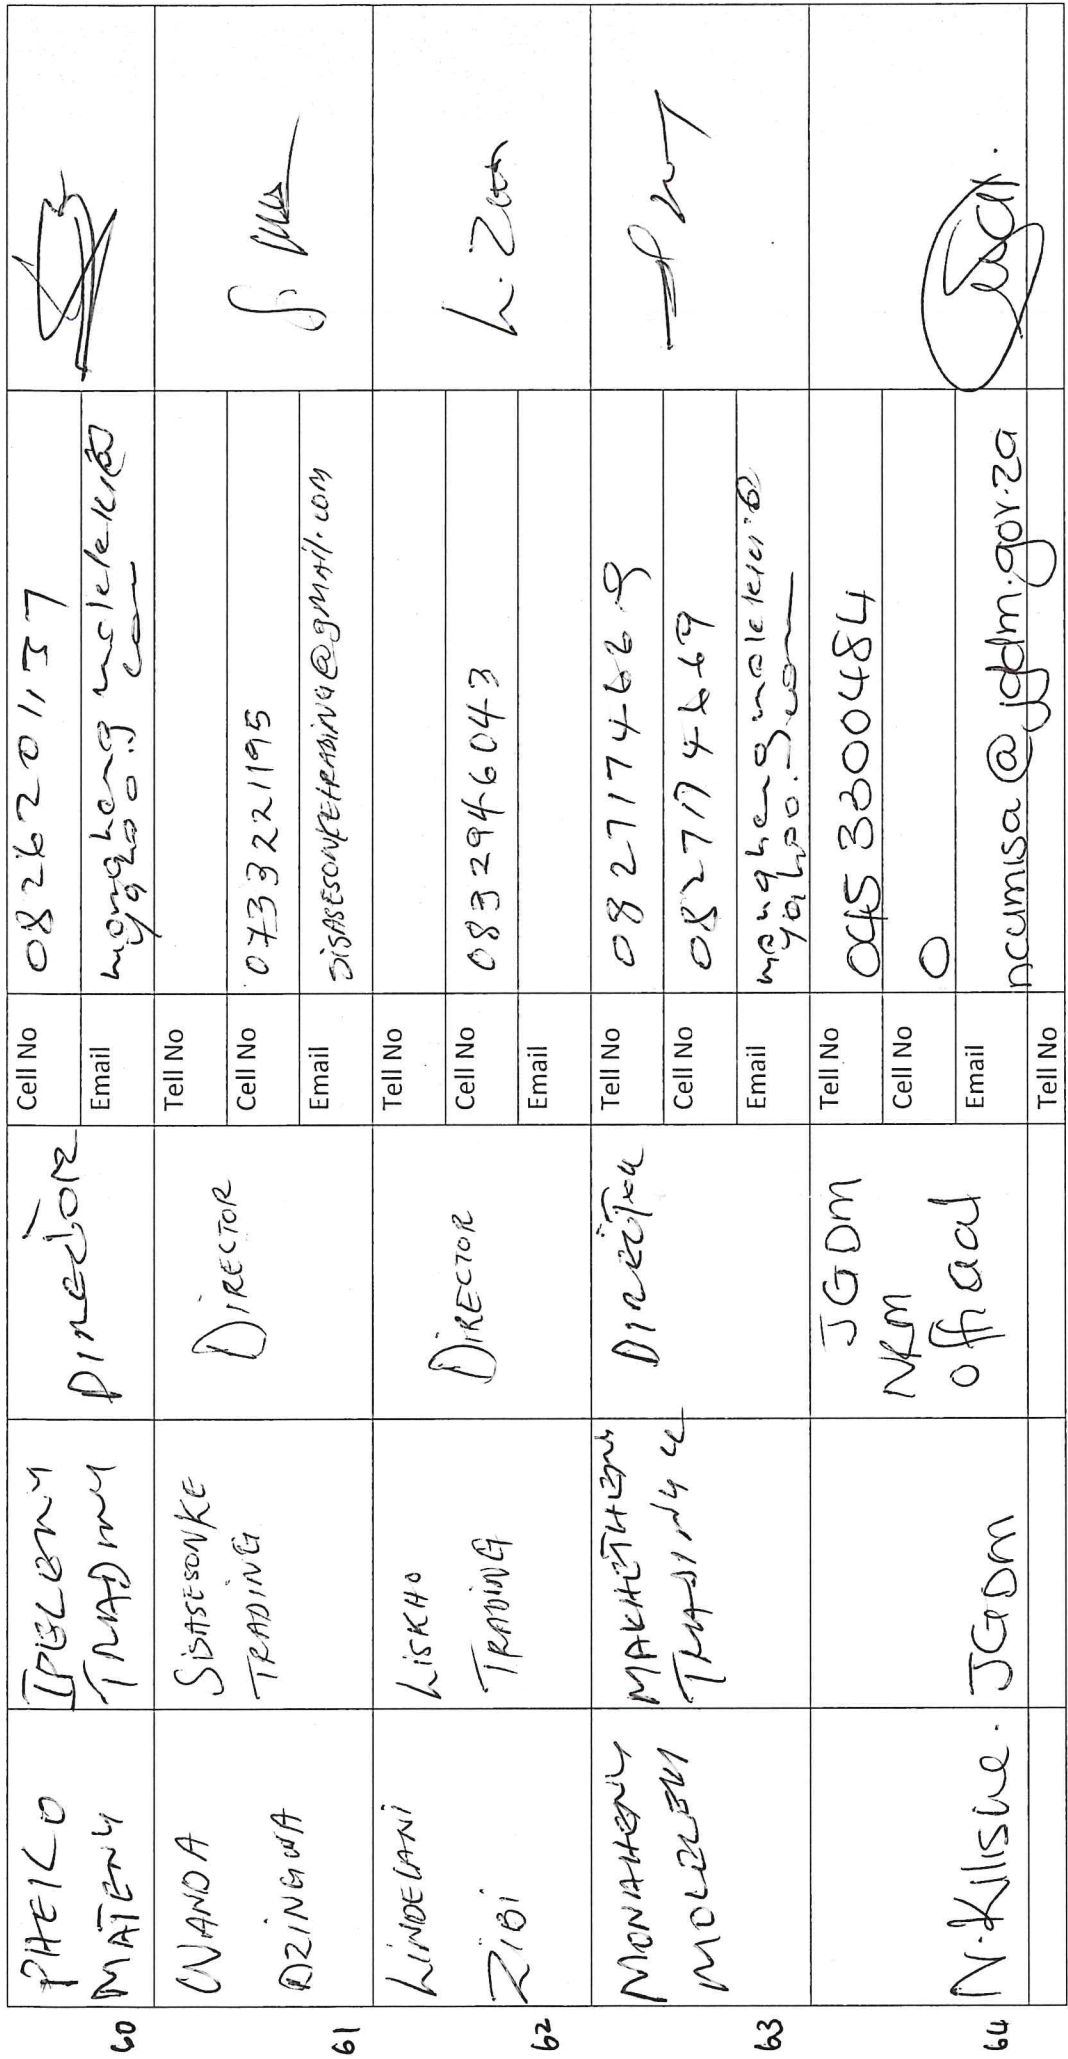 60
PHEILO
MATENG
IPELENG
TRADING
DIRECTOR
Cell No
0826201137
Email
yahoo.com
61
WANDA
SISASESONKE
TRADING
DIRECTOR
Tell No
Cell No
0733221195
Email
SISASESONKETRADING@gmail.com
62
LINDELANI
ZIBI
LISKHO
TRADING
DIRECTOR
Tell No
Cell No
0832946043
Email
L. Zibi
63
TRADING
DIRECTOR
Tell No
0827174669
Cell No
0827174669
Email
yahoo.com
64
N. Klishe.
JGDM
JGDM
NRM
official
Tell No
045 3300484
Cell No
0
Email
ncumisa@jgdm.gov.za
Tell No